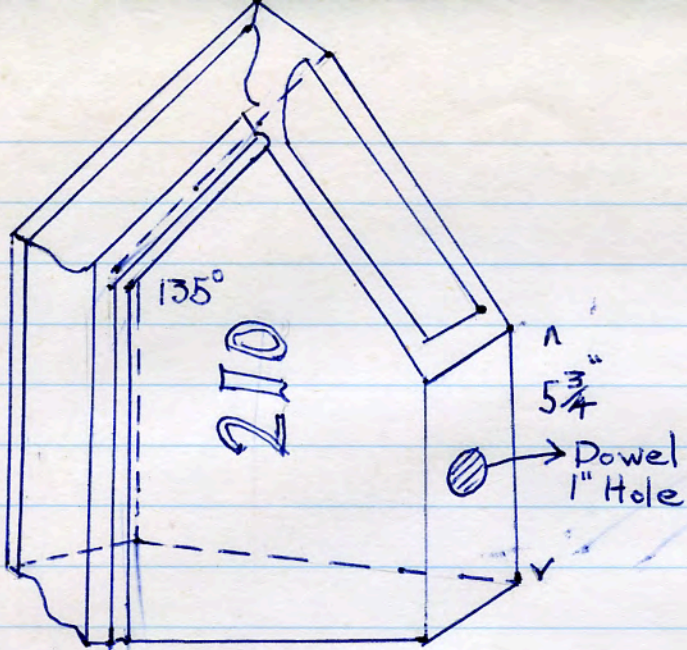 135°
210
5 3/4"
Dowel
1" Hole